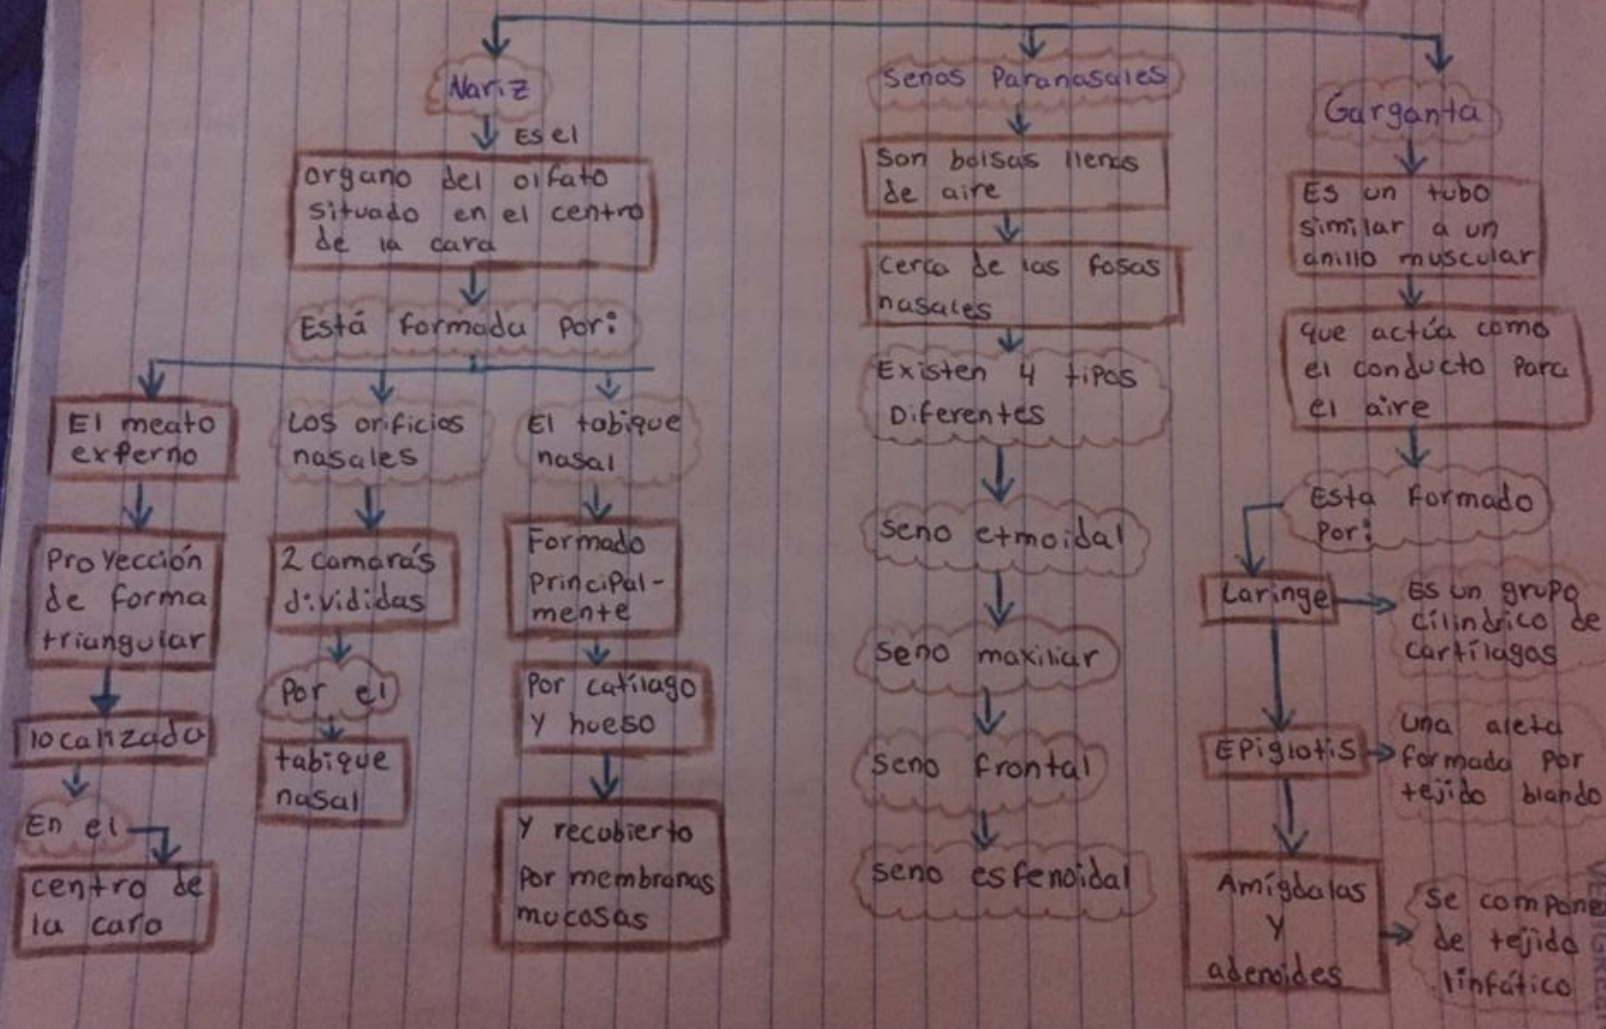 Nariz
Es el
organo del olfato
situado en el centro
de la cara
Está formada por:
El meato
experno
Proyección
de forma
triangular
localizada
En el
centro de
la cara
Los orificios
nasales
2 camarás
divididas
Por el
tabique
nasal
El tabique
nasal
Formado
principal-
mente
Por catílago
y hueso
Y recubierto
por membranas
mucosas
Senos Paranasales
Son bolsas llenas
de aire
Cerca de las fosas
nasales
Existen 4 tipos
Diferentes
Seno etmoidal
Seno maxiliar
Seno frontal
Seno esfenoidal
Garganta
Es un tubo
similar a un
anillo muscular
que actúa como
el conducto para
el aire
Esta formado
por:
Laringe
Es un grupo
cílindrico de
cartílagos
Epiglotis
Una aleta
formada por
tejido blando
Amígdalas
y
adenoides
Se compone
de tejido
linfático